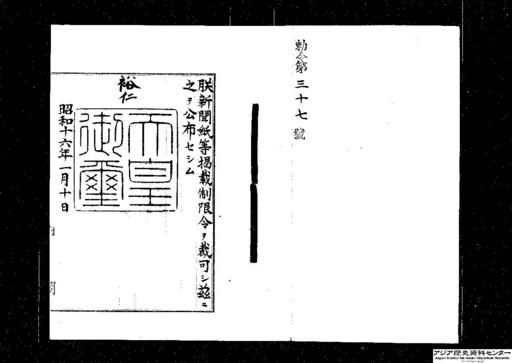 勅令第三十七號
朕新聞紙等掲載制限令ヲ裁可シ茲ニ
之ヲ公布セシム
裕仁
天皇
御璽
昭和十六年一月十日
アジア歴史資料センター
Japan Center for Asian Historical Records